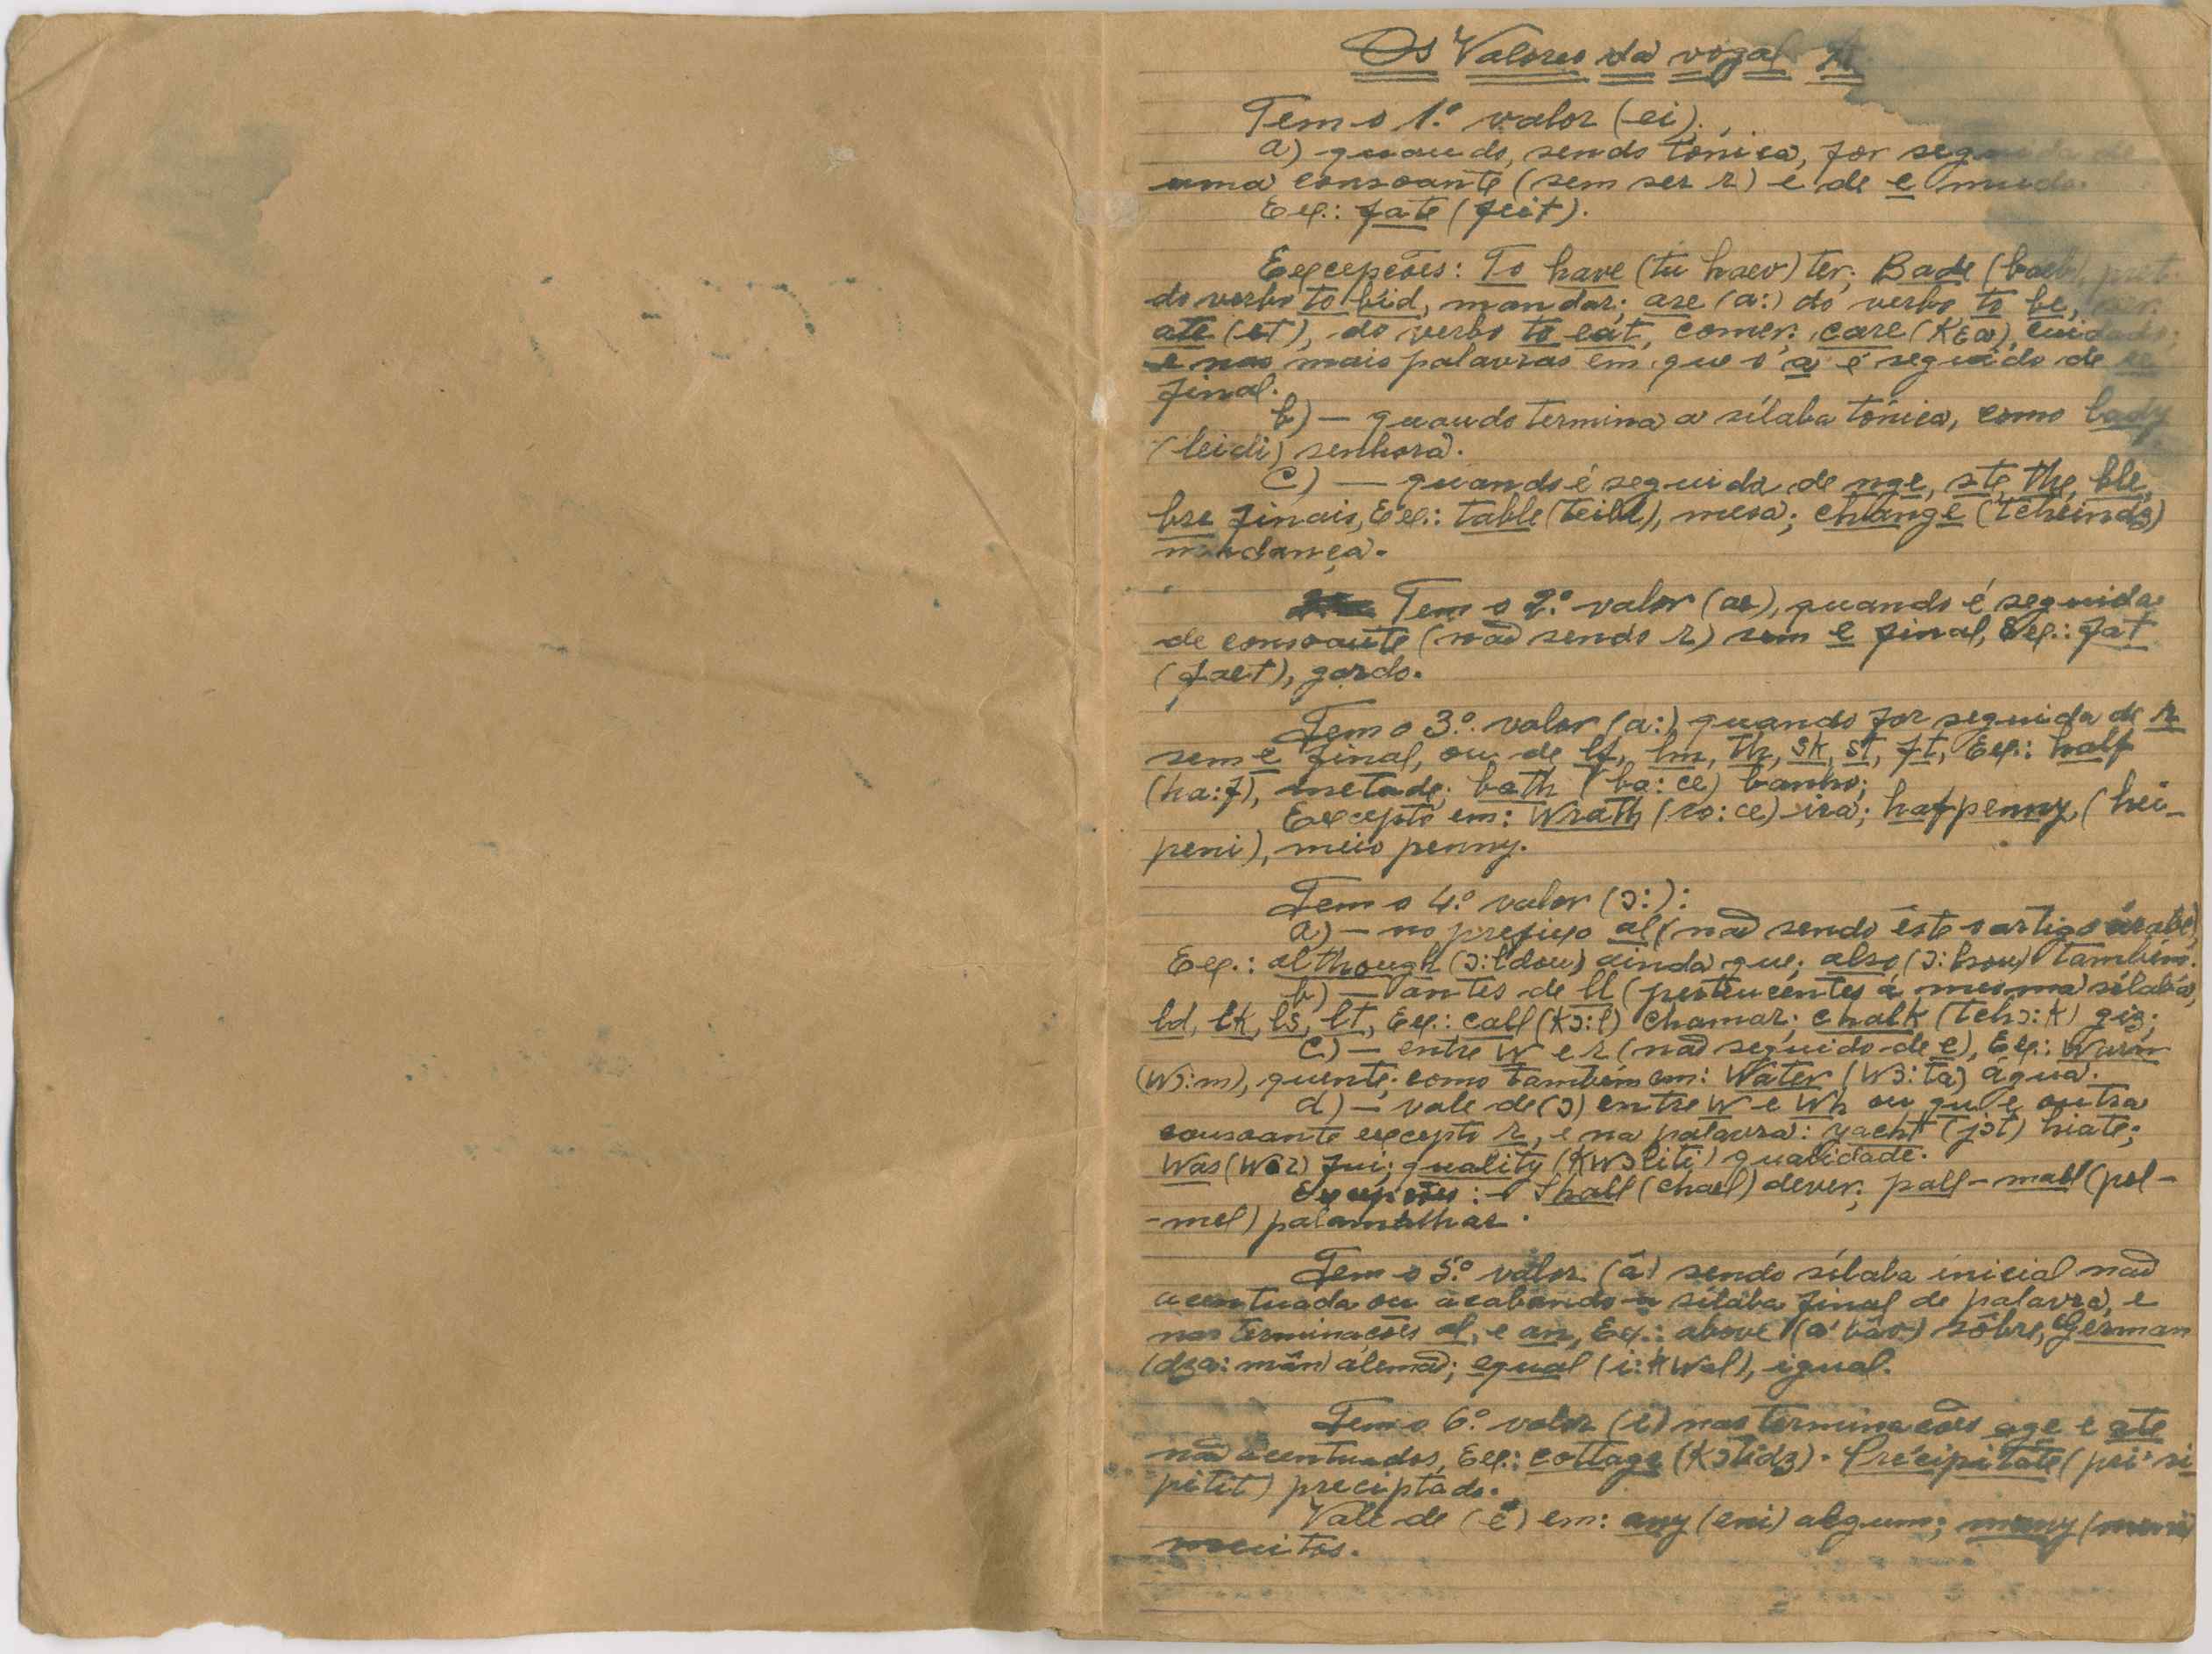 Os Valores da vogal A
Tem o 1.º valor (ei).
a) quando, sendo tónica, for seguida de
uma consoante (sem ser r) e de e mudo.
Ex.: fate (feit).
Excepcões: To have (tu haev) ter; Bade (baed), pret.
do verbo to bid, mandar; are (a:) do verbo to be, ser.
ate (et), do verbo to eat, comer; care (Kɛa), cuidado;
e nas mais palavras em que o a é seguido de re
final.
b) — quando termina a sílaba tónica, como lady
(leidi) senhora.
c) — quando é seguida de nge, ste, the, ble,
bre finais, Ex.: table (teibl), mesa; change (tcheindʒ)
mudança.
Tem o 2.º valor (ae), quando é seguida
de consoante (não sendo r) sem e final, Ex.: fat
(faet), gordo.
Tem o 3.º valor (a:) quando for seguida de r
sem e final, ou de lf, lm, th, sk, st, ft, Ex.: half
(ha:f), metade; bath (ba:ce) banho;
Excepto em: Wrath (ro:ce) ira; halfpenny, (hei-
peni), meio penny.
Tem o 4.º valor (ɔ:):
a) — no prefixo al (não sendo êste o artigo árabe),
Ex.: although (ɔ:ldou) ainda que; also (ɔ:lsou) também.
b) — antes de ll (pertencentes á mesma sílaba),
ld, lk, ls, lt, Ex.: call (Kɔ:l) chamar; chalk (tchɔ:k) giz;
c) — entre w e r (não seguido de e), Ex.: Warm
(Wɔ:m), quente; como também em: Water (Wɔ:ta) água.
d) — vale de (ɔ) entre W e Wh ou qu e outra
consoante excepto r, e na palavra: yacht (jɔt) hiate;
Was (Wɔz) fui; quality (KWɔliti) qualidade.
Excepções: — Shall (chael) dever; pall-mall (pel-
-mel) palamalhar.
Tem o 5.º valor (â) sendo sílaba inicial não
acentuada ou acabando a sílaba final de palavra, e
nas terminações al, e an, Ex.: above (a'bâv) sôbre, German
(dʒa:mân) alemão; equal (i:kWal), igual.
Tem o 6.º valor (i) nas terminacões age e ate
não acentuados, Ex.: cottage (Kɔtidʒ). Precipitate (pri'si
pitit) preciptado.
Vale de (e) em: any (eni) algum; many (meni)
muitos.